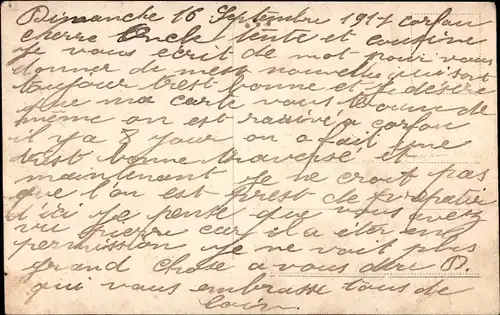 Dimanche 16 Septembre 1917 corfou
cherre Oncle tente et cousine
je vous ecrit se mot pour vous
donner de mest nouvelle qui sont
toujour trest bonne et je désire
que ma carte vous trouve de
même on est rarrivé a corfou
il y a 3 jour on a fait une
trest bonne traversé et
maintenant je ne croit pas
que l'on est prest de
d'ici je pense que vous avez
vu pierre car il a éter en
permission je ne voit plus
grand chose a vous dire
qui vous embrasse tous de
loin.